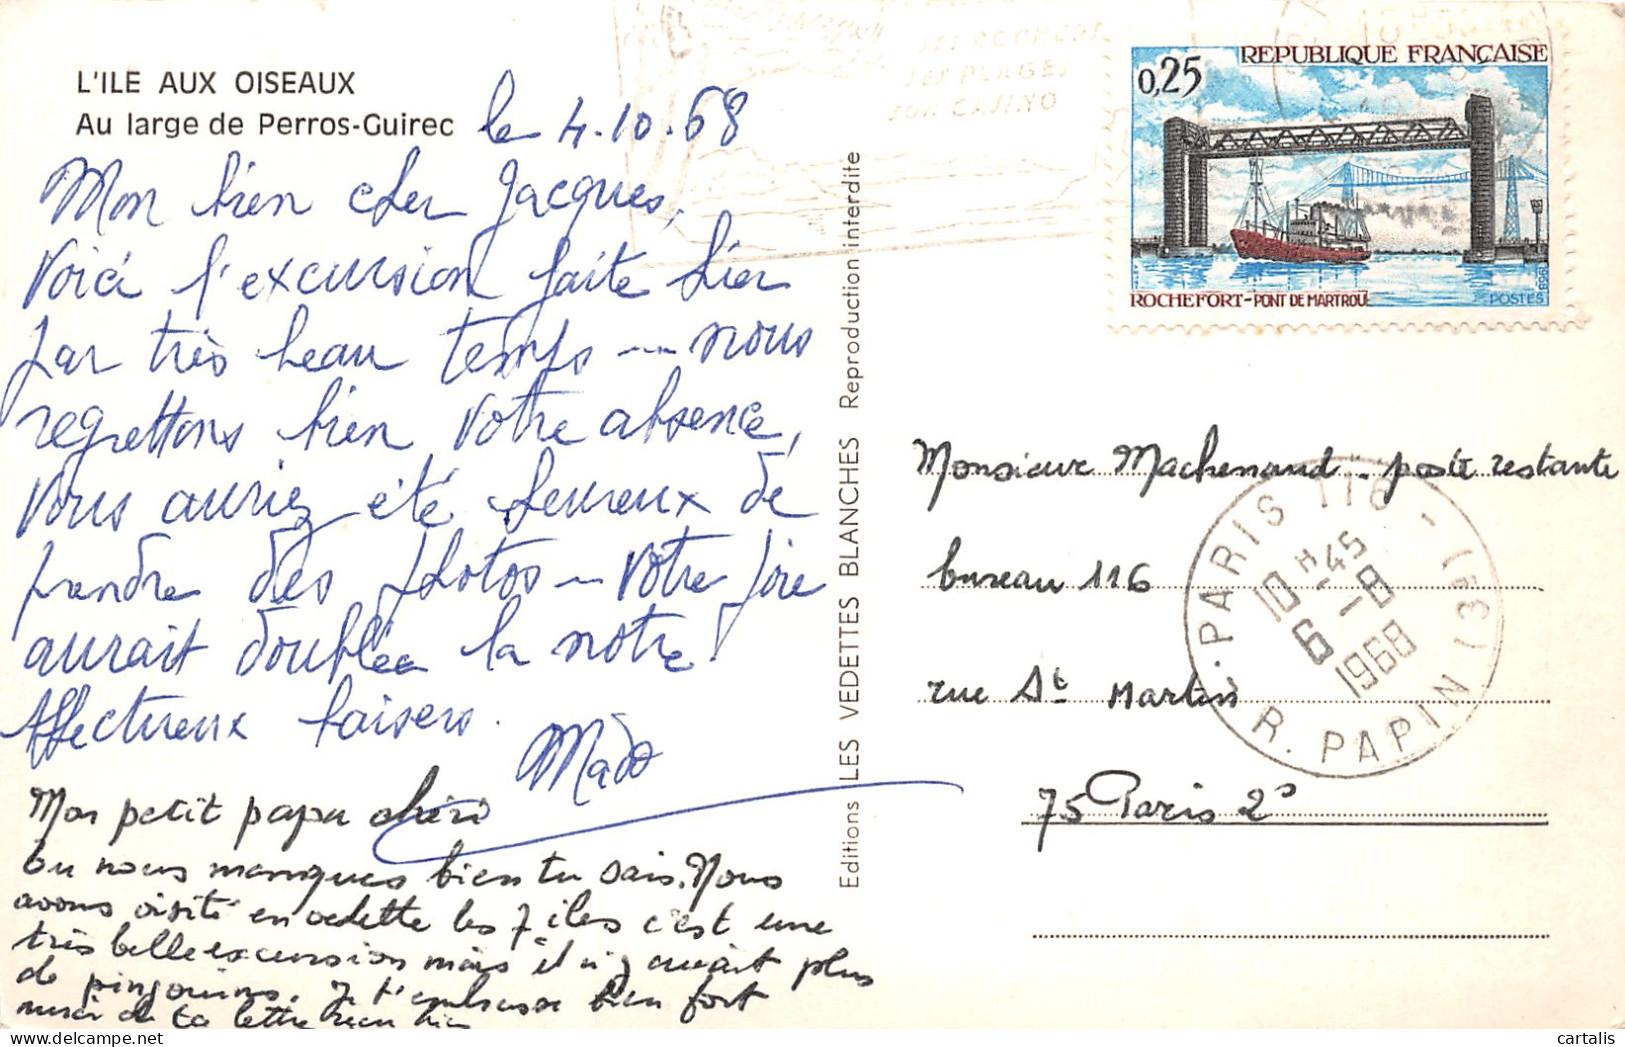 L'ILE AUX OISEAUX
Au large de Perros-Guirec
le 4.10.68
Mon bien cher Jacques,
Voici l'excursion faite hier
par très beau temps — nous
regrettons bien votre absence,
Vous auriez été heureux de
prendre des photos — votre joie
aurait doublée la notre!
Affectueux baisers.
Mado
Mon petit papa chéri
tu nous manques bien tu sais. Nous
avons visité en vedette les 7 iles c'est une
très belle excursion mais il n'y avait plus
de pingouins. Je t'embrasse bien fort
merci de ta lettre
Editions LES VEDETTES BLANCHES Reproduction interdite
SES ROCHERS
SES PLAGES
SON CASINO
REPUBLIQUE FRANÇAISE
0,25
ROCHEFORT-PONT DE MARTROU
POSTES 1968
Monsieur Machenaud - poste restante
bureau 116
rue St Martin
75 Paris 2°
PARIS 116 - (3e)
10 H 45
6 - 8
1968
R. PAPIN
cartalis